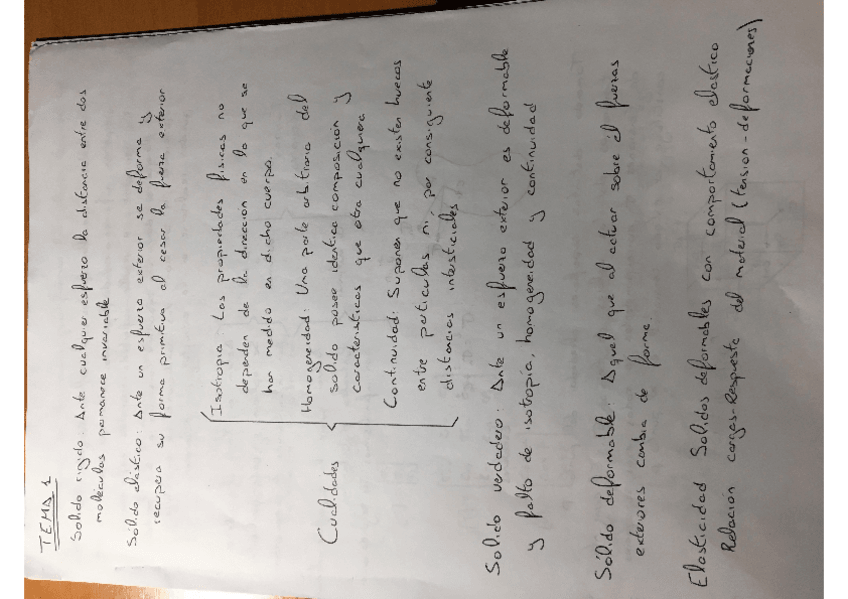 TEMA 1
Solido rigido. Ante cualquier esfuerzo la distancia entre dos
moleculas permanece invariable
Sólido elástico: Ante un esfuerzo exterior se deforma y
recupera su forma primitiva al cesar la fuerza exterior
Cualidades
Isotropia: Las propiedades fisicas no
dependen de la direccion en la que se
han medido en dicho cuerpo.
Homogeneidad: Una parte arbitraria del
solido posee identica composición y
caracteristicas que otra cualquiera
Continuidad: Suponen que no existen huecos
entre particulas ni, por consiguiente
distancias intersticiales
Solido verdadero. Ante un esfuerzo exterior es deformable
y falto de isotropia, homogeneidad y continuidad
Sólido deformable: Aquel que al actuar sobre él fuerzas
exteriores cambia de forma.
Elasticidad Solidos deformables con comportamiento elastico
Relacion cargas-Respuesta del material (tension-deformaciones)